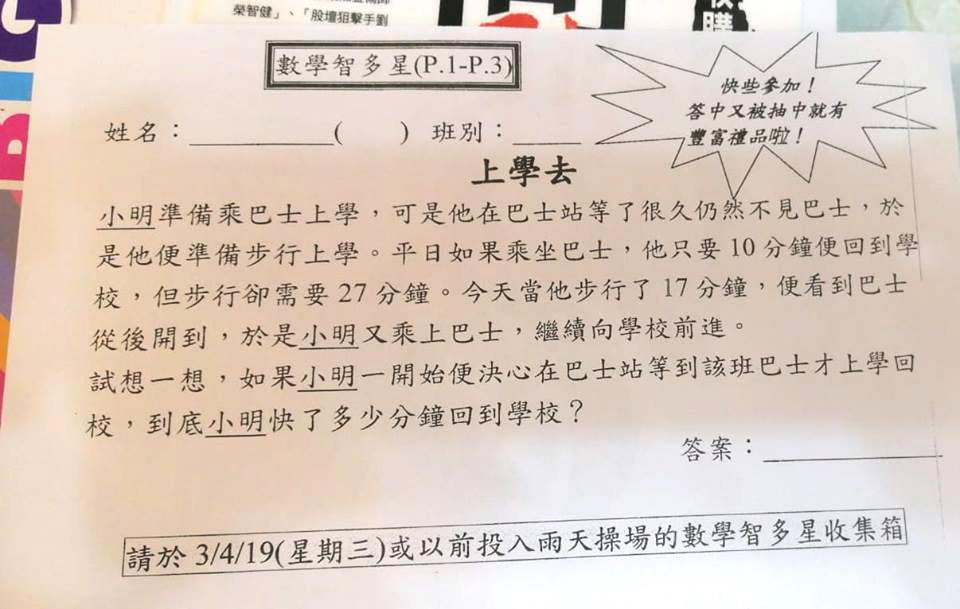 榮智健」、「股壇狙擊手劉
數學智多星(P.1-P.3)
快些參加！
答中又被抽中就有
豐富禮品啦！
姓名：__________( ) 班別：_____
上學去
小明準備乘巴士上學，可是他在巴士站等了很久仍然不見巴士，於
是他便準備步行上學。平日如果乘坐巴士，他只要 10 分鐘便回到學
校，但步行卻需要 27 分鐘。今天當他步行了 17 分鐘，便看到巴士
從後開到，於是小明又乘上巴士，繼續向學校前進。
試想一想，如果小明一開始便決心在巴士站等到該班巴士才上學回
校，到底小明快了多少分鐘回到學校？
答案：_____________
請於 3/4/19(星期三)或以前投入雨天操場的數學智多星收集箱